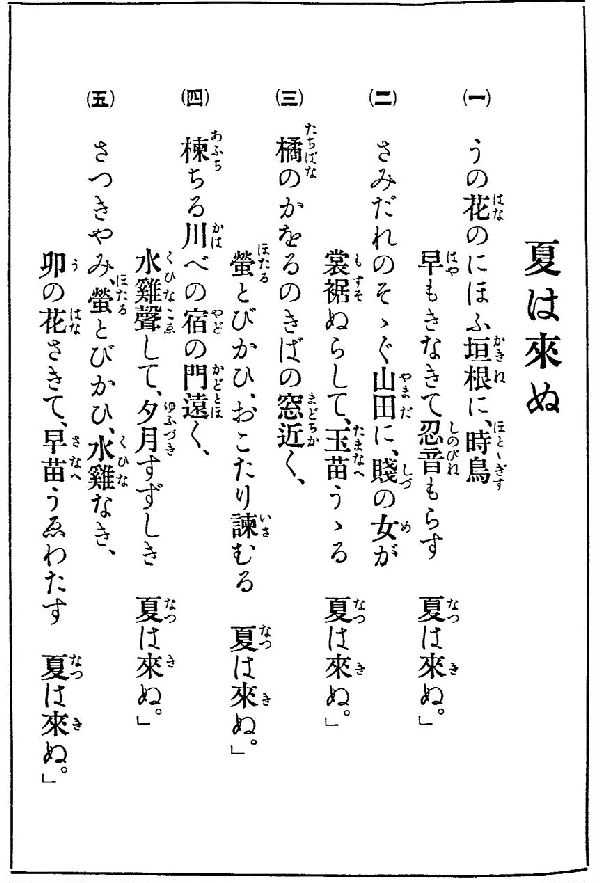 夏は來ぬ
(一)
うの花のにほふ垣根に、時鳥
早もきなきて忍音もらす 夏は來ぬ。」
(二)
さみだれのそゝぐ山田に、賤の女が
裳裾ぬらして、玉苗うゝる 夏は來ぬ。」
(三)
橘のかをるのきばの窓近く、
螢とびかひ、おこたり諫むる 夏は來ぬ。」
(四)
楝ちる川べの宿の門遠く、
水雞聲して、夕月すずしき 夏は來ぬ。」
(五)
さつきやみ、螢とびかひ、水雞なき、
卯の花さきて、早苗うゑわたす 夏は來ぬ。」